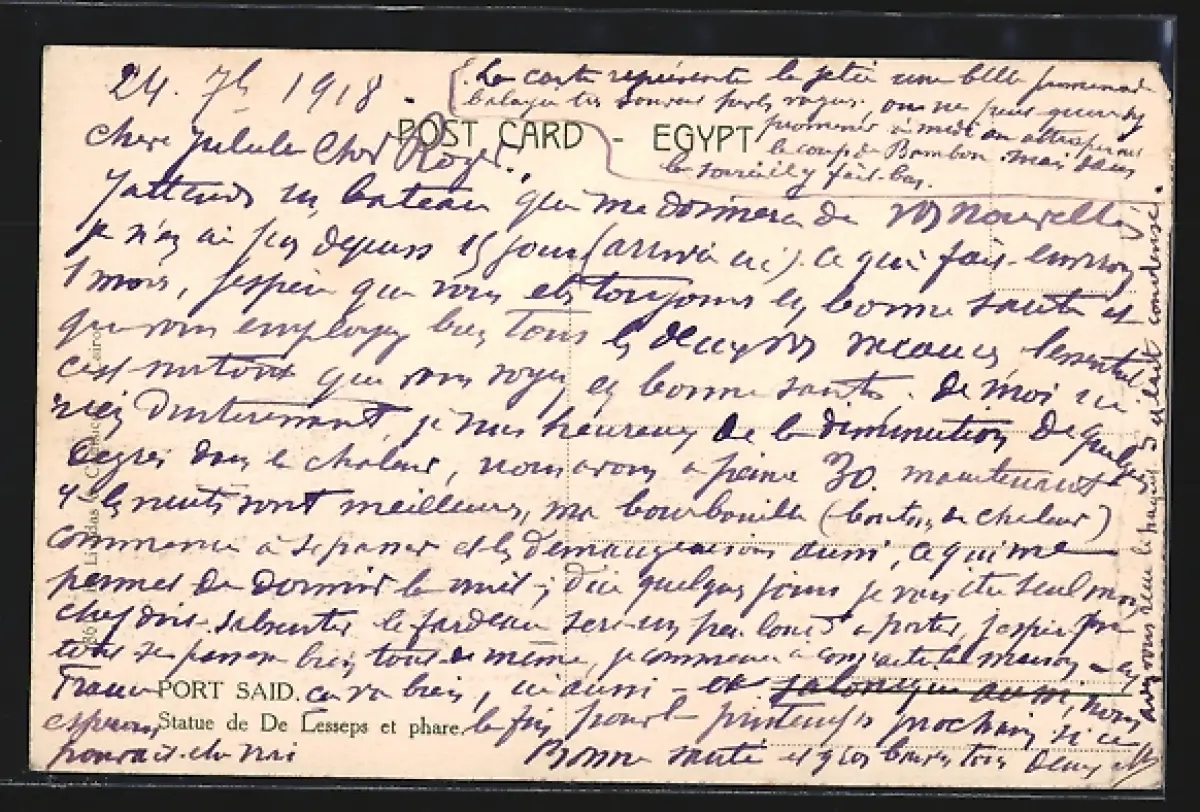 24. 7b 1918.
La carte représente la jetée une belle promenade
balayée très souvent par les vagues. on ne peut guère s'y
promener à midi on attraperait
le coup de Bambou. mais dans
la soirée il y fait bon.
POST CARD - EGYPT
Chère Cher Roger,
J'attends un bateau qui me donnera de vos nouvelles
je n'en ai pas depuis 15 jours (arrivée ici). ce qui fait environ
1 mois, j'espère que vous êtes toujours en bonne santé et
que vous employez bien tous les deux vos vacances l'essentiel
c'est surtout que vous soyez en bonne santé. De moi
rien d'intéressant, je suis heureux de la diminution de quelques
degrés dans la chaleur, nous avons à peine 30. maintenant
et les nuits sont meilleures, ma bourbouille (boutons de chaleur)
commence à se passer et les démangeaisons aussi, ce qui me
permet de dormir la nuit; d'ici quelques jours je vais être seul mon
chef doit s'absenter le fardeau sera un peu lourd à porter, j'espère que
tout se passera bien tout de même, je commence à connaître la maison - en
France ça va bien, ici aussi - et Salonique aussi, nous
espérons la fin pour le printemps prochain si ce
pouvait être vrai
Bonne santé et gros baisers tous deux
avez vous reçu le paquet et lait condensé.
PORT SAID.
Statue de De Lesseps et phare.
Cairo